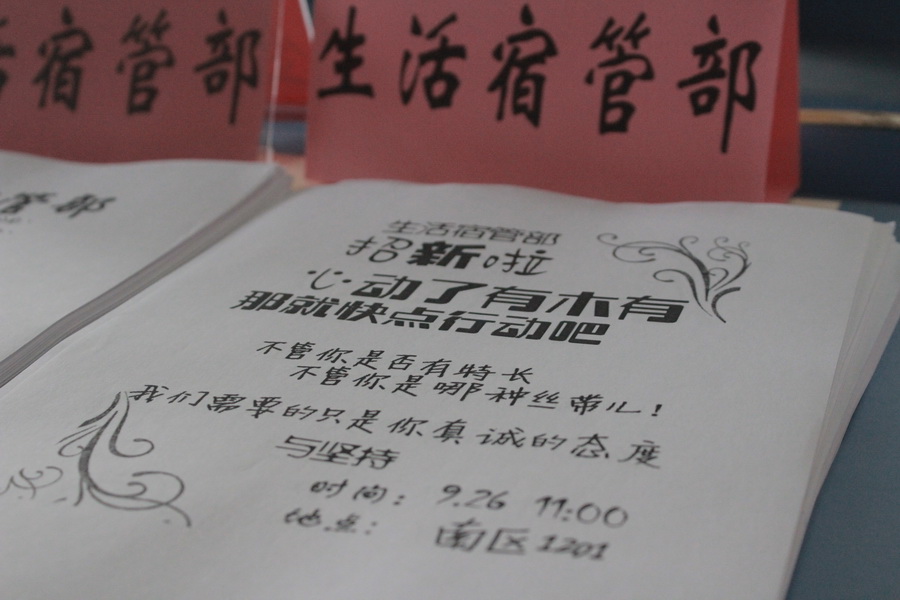 宿管部
生活宿管部
管部
生活宿管部
招新啦
心动了有木有
那就快点行动吧
不管你是否有特长
不管你是哪种丝带儿！
我们需要的只是你真诚的态度
与坚持
时间：9.26 11:00
地点：南区1201